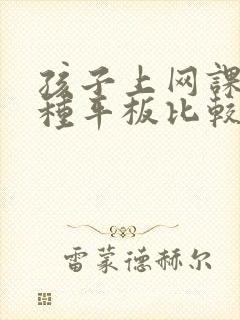 孩子上网課
種平板比較
雷蒙德赫尔